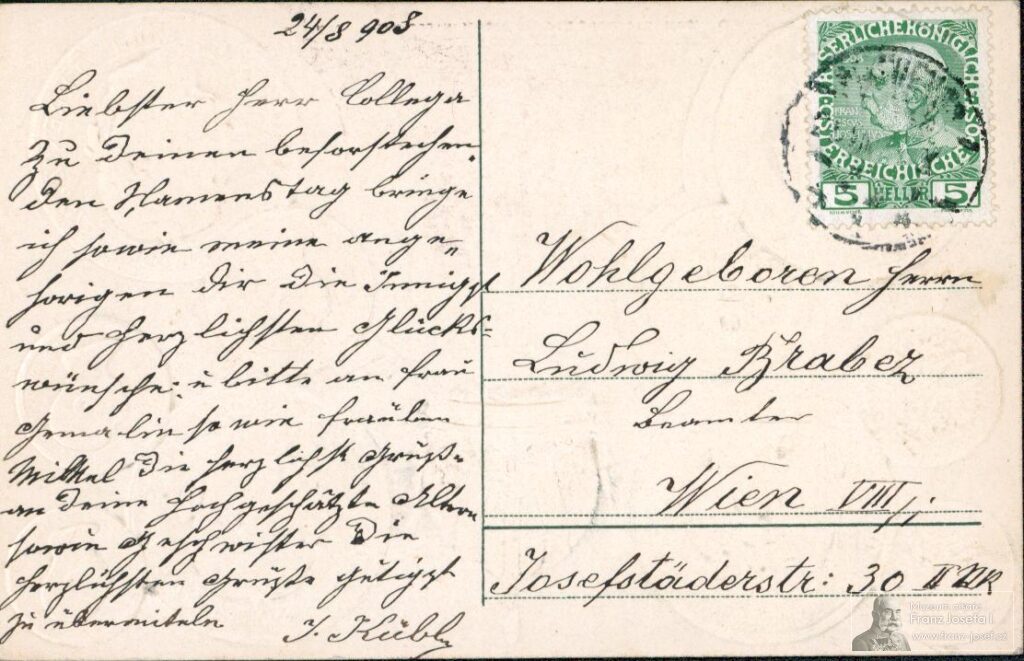 24/8 908
Liebster Herr Collega
Zu Deinen beforstehen„
den Namenstag bringe
ich sowie meine ange„
hörigen Dir Die Innigst
und herzlichsten Glücks-
wünsche; u bitte an Frau
Gemalin so wie Fräulein
Mittel Die herzlichst Grüße
an Deine Hochgeschätzte Altern
sowie Geschwister Die
herzlichsten Grüße gütigst
zu übermiteln
J. Kübl
KAISERLICHE KÖNIGLICHE
ÖSTERREICHISCHE
5 HELLER 5
Wohlgeboren Herrn
Ludwig Brabez
Beamter
Wien VIII/1
Josefstäderstr: 30
Muzeum císaře
Franz Josefa I.
www.franz-josef.cz